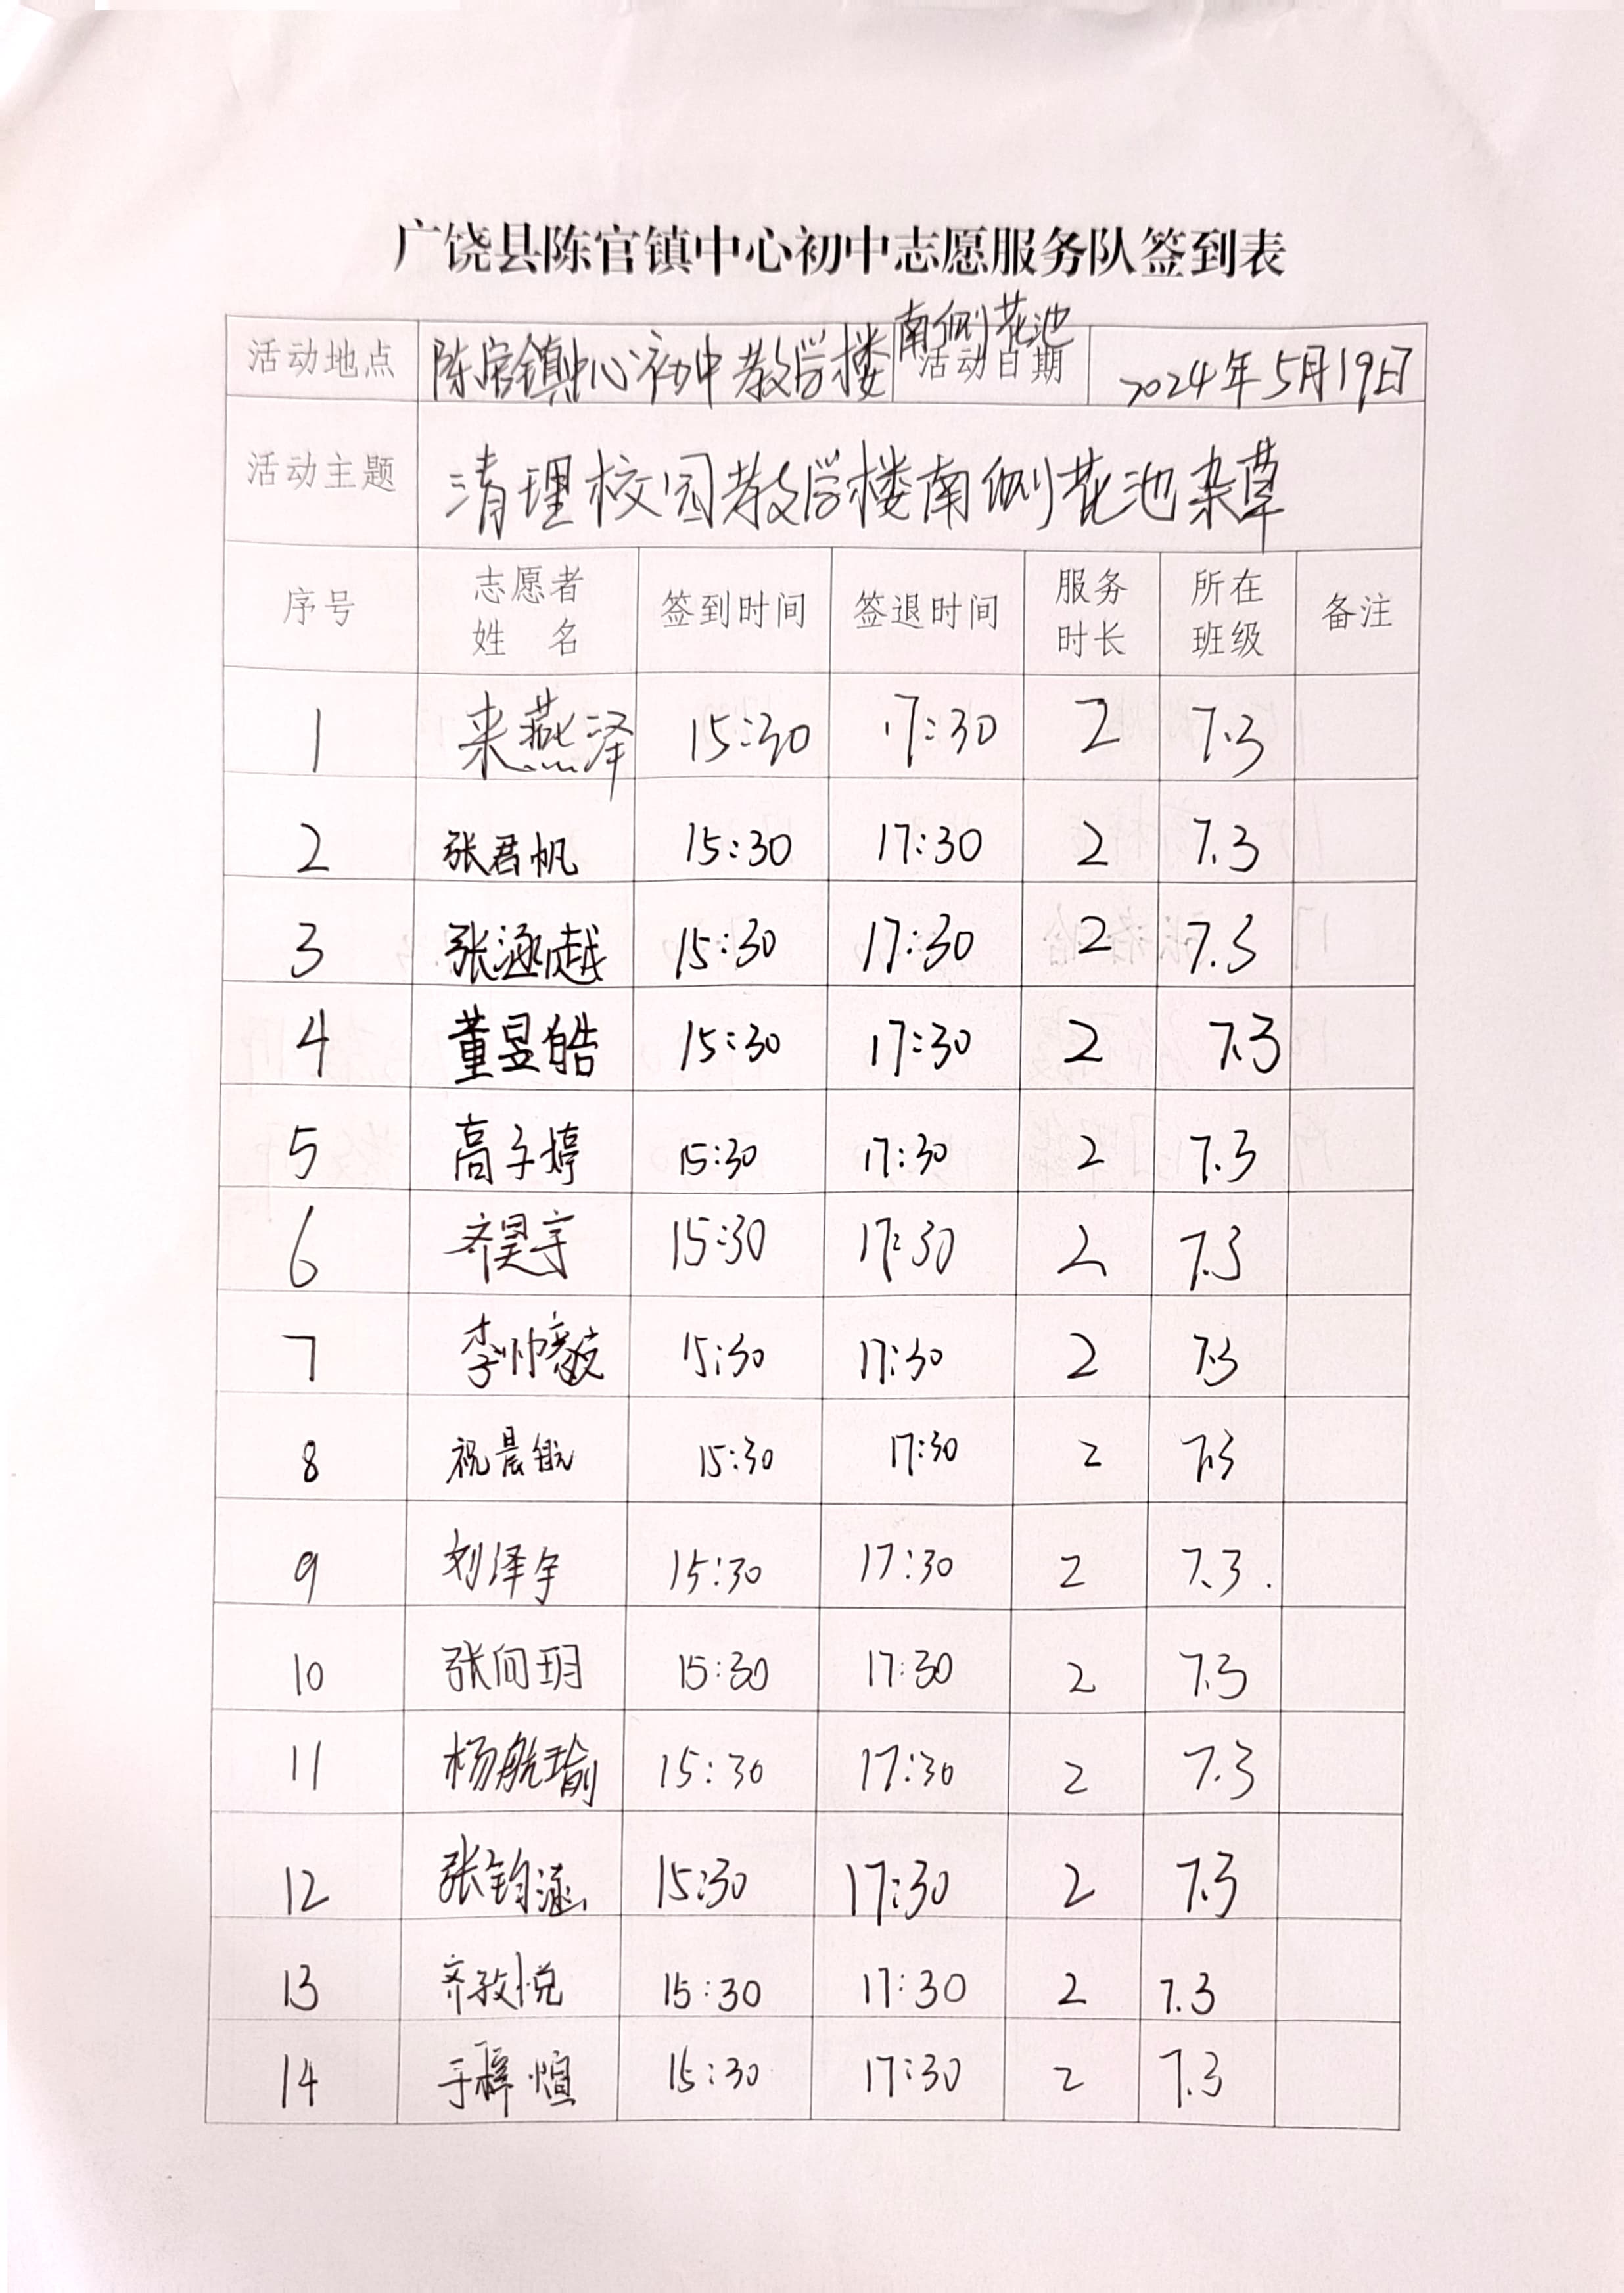 广饶县陈官镇中心初中志愿服务队签到表
活动地点 陈官镇中心初中教学楼南侧花池 活动日期 2024年5月19日
活动主题 清理校园教学楼南侧花池杂草
序号 志愿者姓名 签到时间 签退时间 服务时长 所在班级 备注
1 来燕泽 15:30 17:30 2 7.3
2 张君帆 15:30 17:30 2 7.3
3 张涵越 15:30 17:30 2 7.3
4 董昱皓 15:30 17:30 2 7.3
5 高子婷 15:30 17:30 2 7.3
6 齐昊宇 15:30 17:30 2 7.3
7 李帅毅 15:30 17:30 2 7.3
8 祝晨航 15:30 17:30 2 7.3
9 刘泽宇 15:30 17:30 2 7.3.
10 张问玥 15:30 17:30 2 7.3
11 杨航瑜 15:30 17:30 2 7.3
12 张钧涵 15:30 17:30 2 7.3
13 齐孜悦 15:30 17:30 2 7.3
14 于梓煊 15:30 17:30 2 7.3